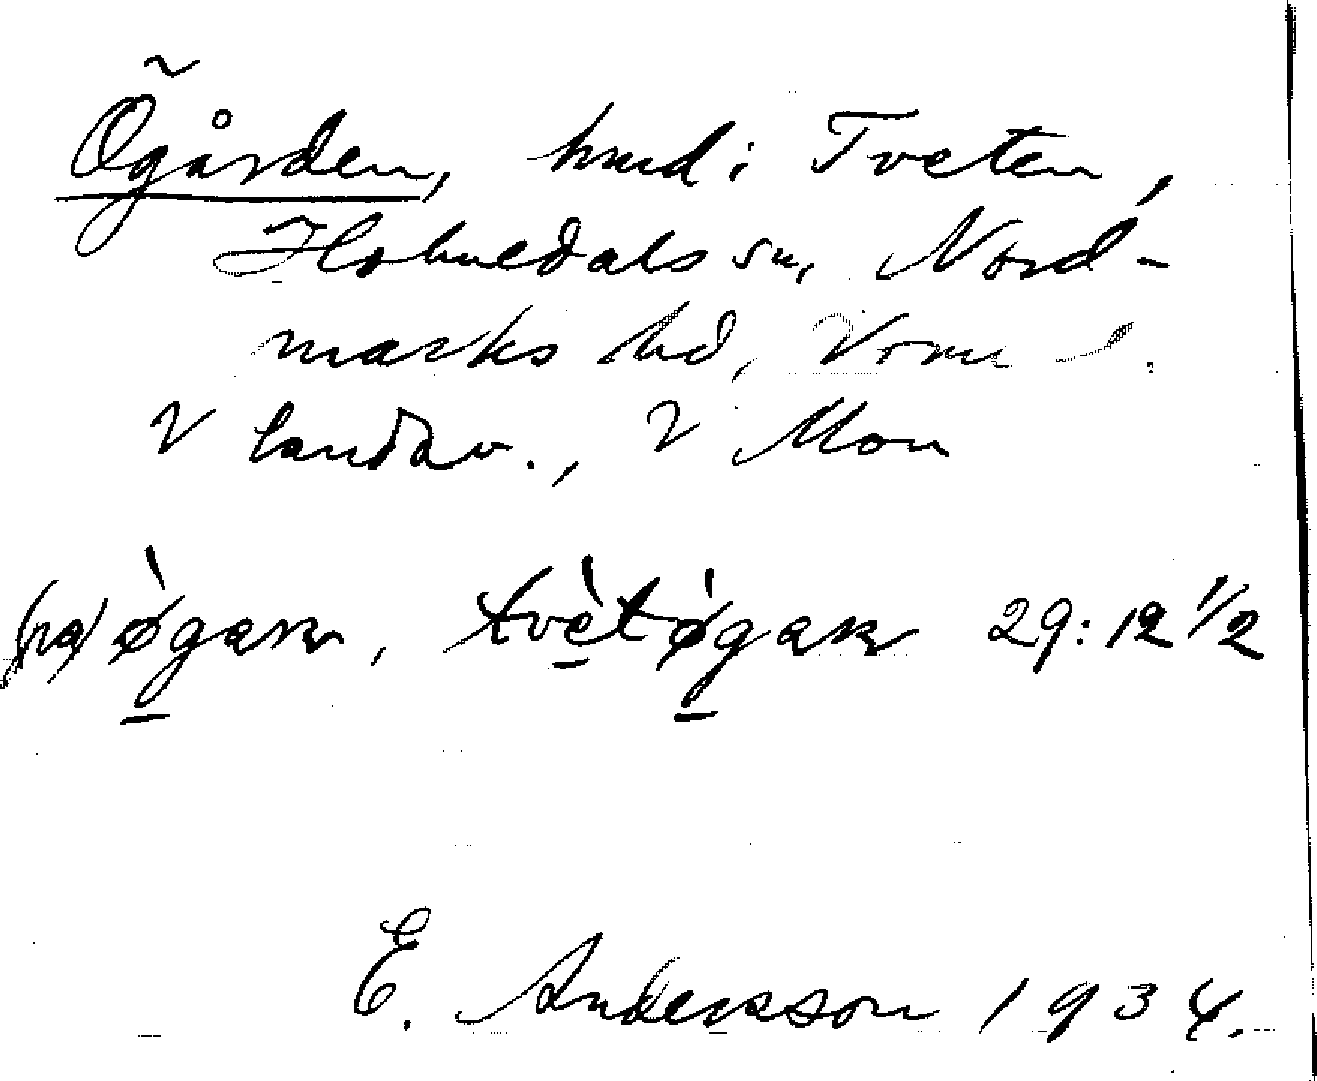 Ögården, hmd i Tveten,
Holmedals sn, Nord-
marks hd, Värml.
V landsv., V Mon
(na) øgaɹn, tvet øgaɹn 29:12 1/2
E. Andersson 1934.